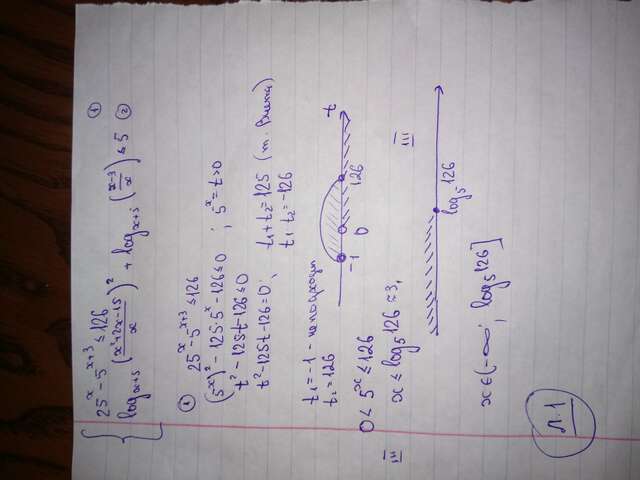 25^x - 5^(x+3) ≤ 126 ①
log_(x+5) ((x²+2x-15)/x)² + log_(x+3) ((x-3)/x) ≤ 5 ②
① 25^x - 5^(x+3) ≤ 126
(5^x)² - 125·5^x - 126 ≤ 0 ; 5^x = t > 0
t² - 125t - 126 ≤ 0
t² - 125t - 126 = 0 ; t₁ + t₂ = 125 (т. Виета)
t₁ t₂ = -126
t₁ = -1 - не подходит
t₂ = 126
-1 0 126 t
0 < 5^x ≤ 126
x ≤ log₅ 126 ≈ 3,
log₅ 126
x ∈ (-∞; log₅ 126]
Л.1